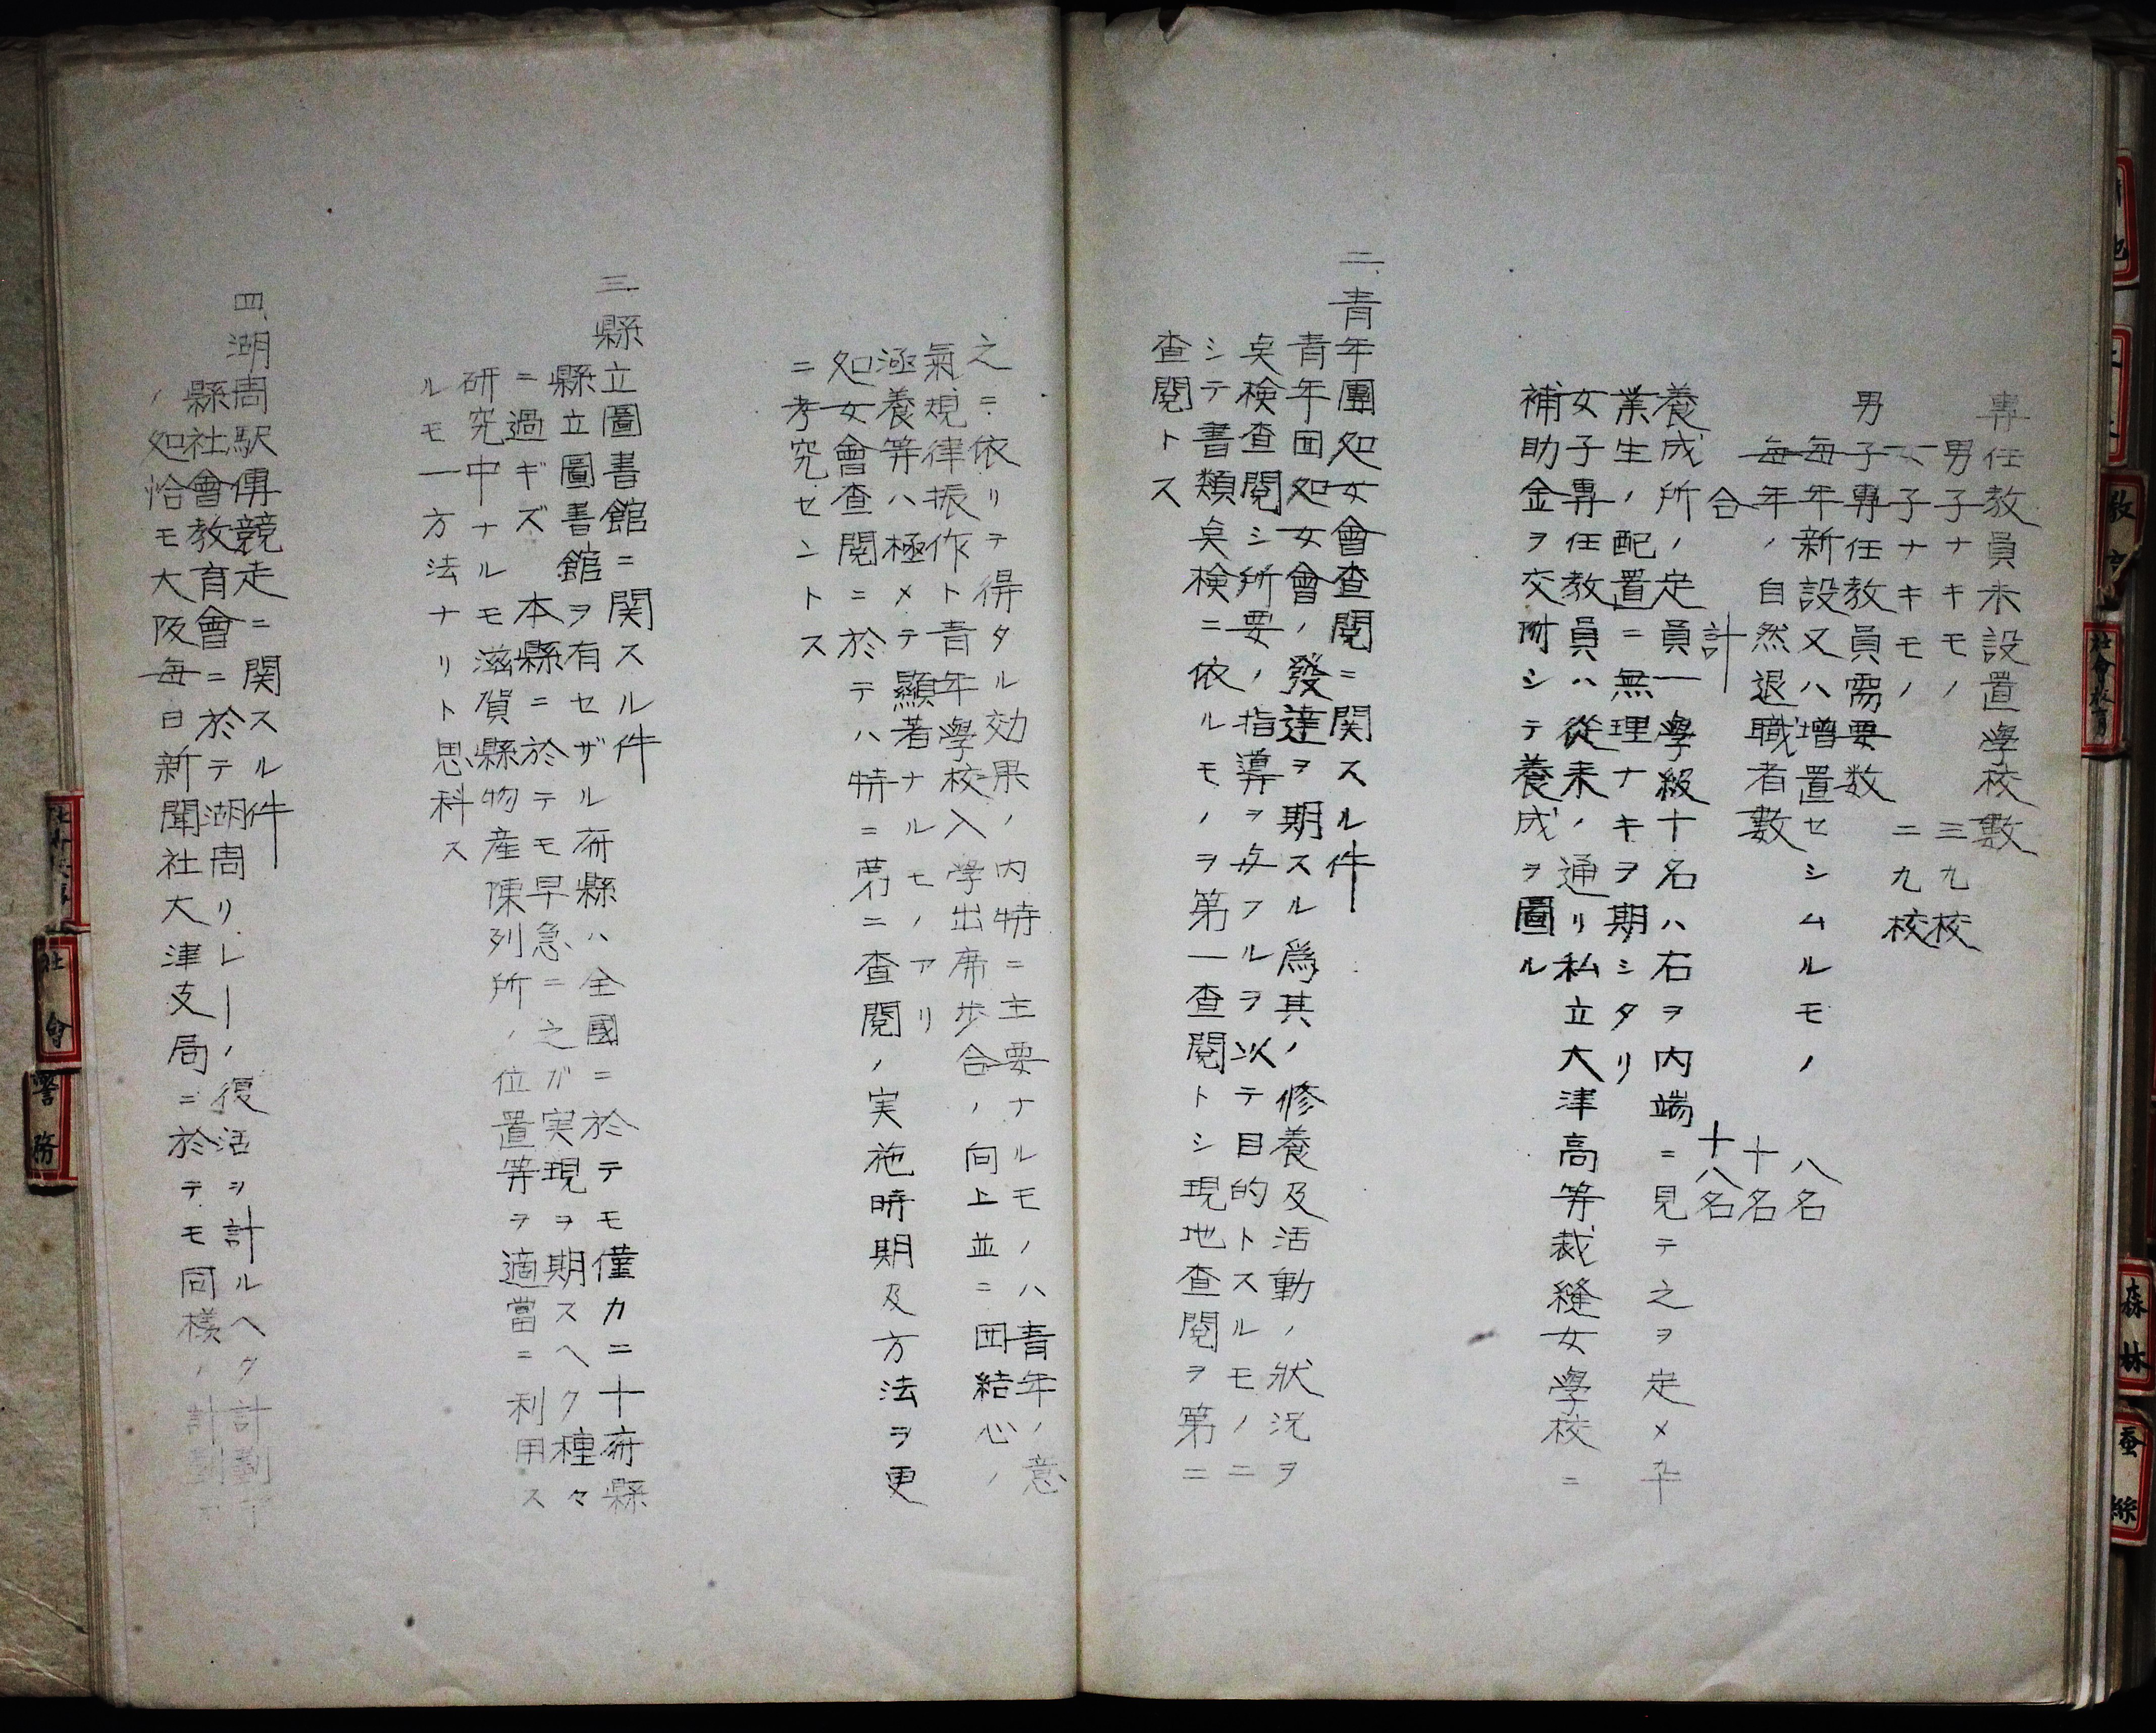 專任教員未設置學校數
男子ナキモノ 三九校
女子ナキモノ 二九校
男子專任教員需要数
每年新設又ハ增置セシムルモノ 八名
每年ノ自然退職者數 十名
合計 十八名
養成所ノ定員一學級十名ハ右ヲ內端ニ見テ之ヲ定メ卒
業生ノ配置ニ無理ナキヲ期シタリ
女子專任教員ハ從来ノ通リ私立大津高等裁縫女學校ニ
補助金ヲ交附シテ養成ヲ圖ル
二、青年團処女會査閲ニ関スル件
青年団処女會ノ發達ヲ期スル爲其ノ修養及活動ノ狀況ヲ
奌検査閲シ所要ノ指導ヲ与フルヲ以テ目的トスルモノニ
シテ書類奌検ニ依ルモノヲ第一査閲トシ現地査閲ヲ第二
査閲トス
之ニ依リテ得タル効果ノ内特ニ主要ナルモノハ青年ノ意
氣規律振作ト青年學校入学出席歩合ノ向上並ニ団結心ノ
涵養等ハ極メテ顯著ナルモノアリ
処女會査閲ニ於テハ特ニ第二査閲ノ実施時期及方法ヲ更
ニ考究セントス
三、縣立圖書館ニ関スル件
縣立圖書館ヲ有セザル府縣ハ全國ニ於テモ僅カ二十府縣
ニ過ギズ本縣ニ於テモ早急ニ之ガ実現ヲ期スヘク種々
研究中ナルモ滋賀縣物産陳列所ノ位置等ヲ適當ニ利用ス
ルモ一方法ナリト思料ス
四、湖周駅傳競走ニ関スル件
縣社會教育會ニ於テ湖周リレーノ復活ヲ計ルヘク計劃中
ノ処恰モ大阪每日新聞社大津支局ニ於テモ同樣ノ計劃ア
教育
社會教育
森林
蚕絲
社會
警務